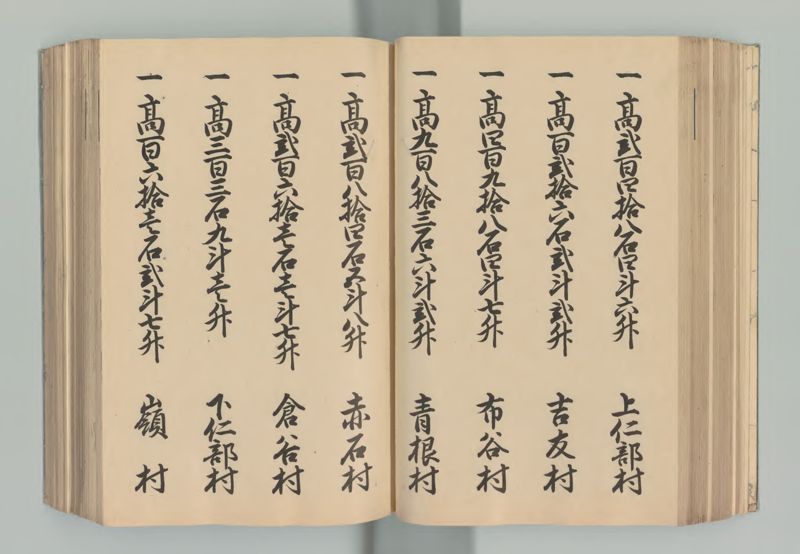 一 高弐百四拾八石四斗六升 上仁部村
一 高百弐拾六石弐斗弐升 吉友村
一 高四百九拾八石四斗七升 布谷村
一 高九百八拾三石六斗弐升 青根村
一 高弐百八拾四石五斗八升 赤石村
一 高弐百六拾壱石壱斗七升 倉谷村
一 高三百三石九斗壱升 下仁部村
一 高百六拾壱石弐斗七升 嶺村